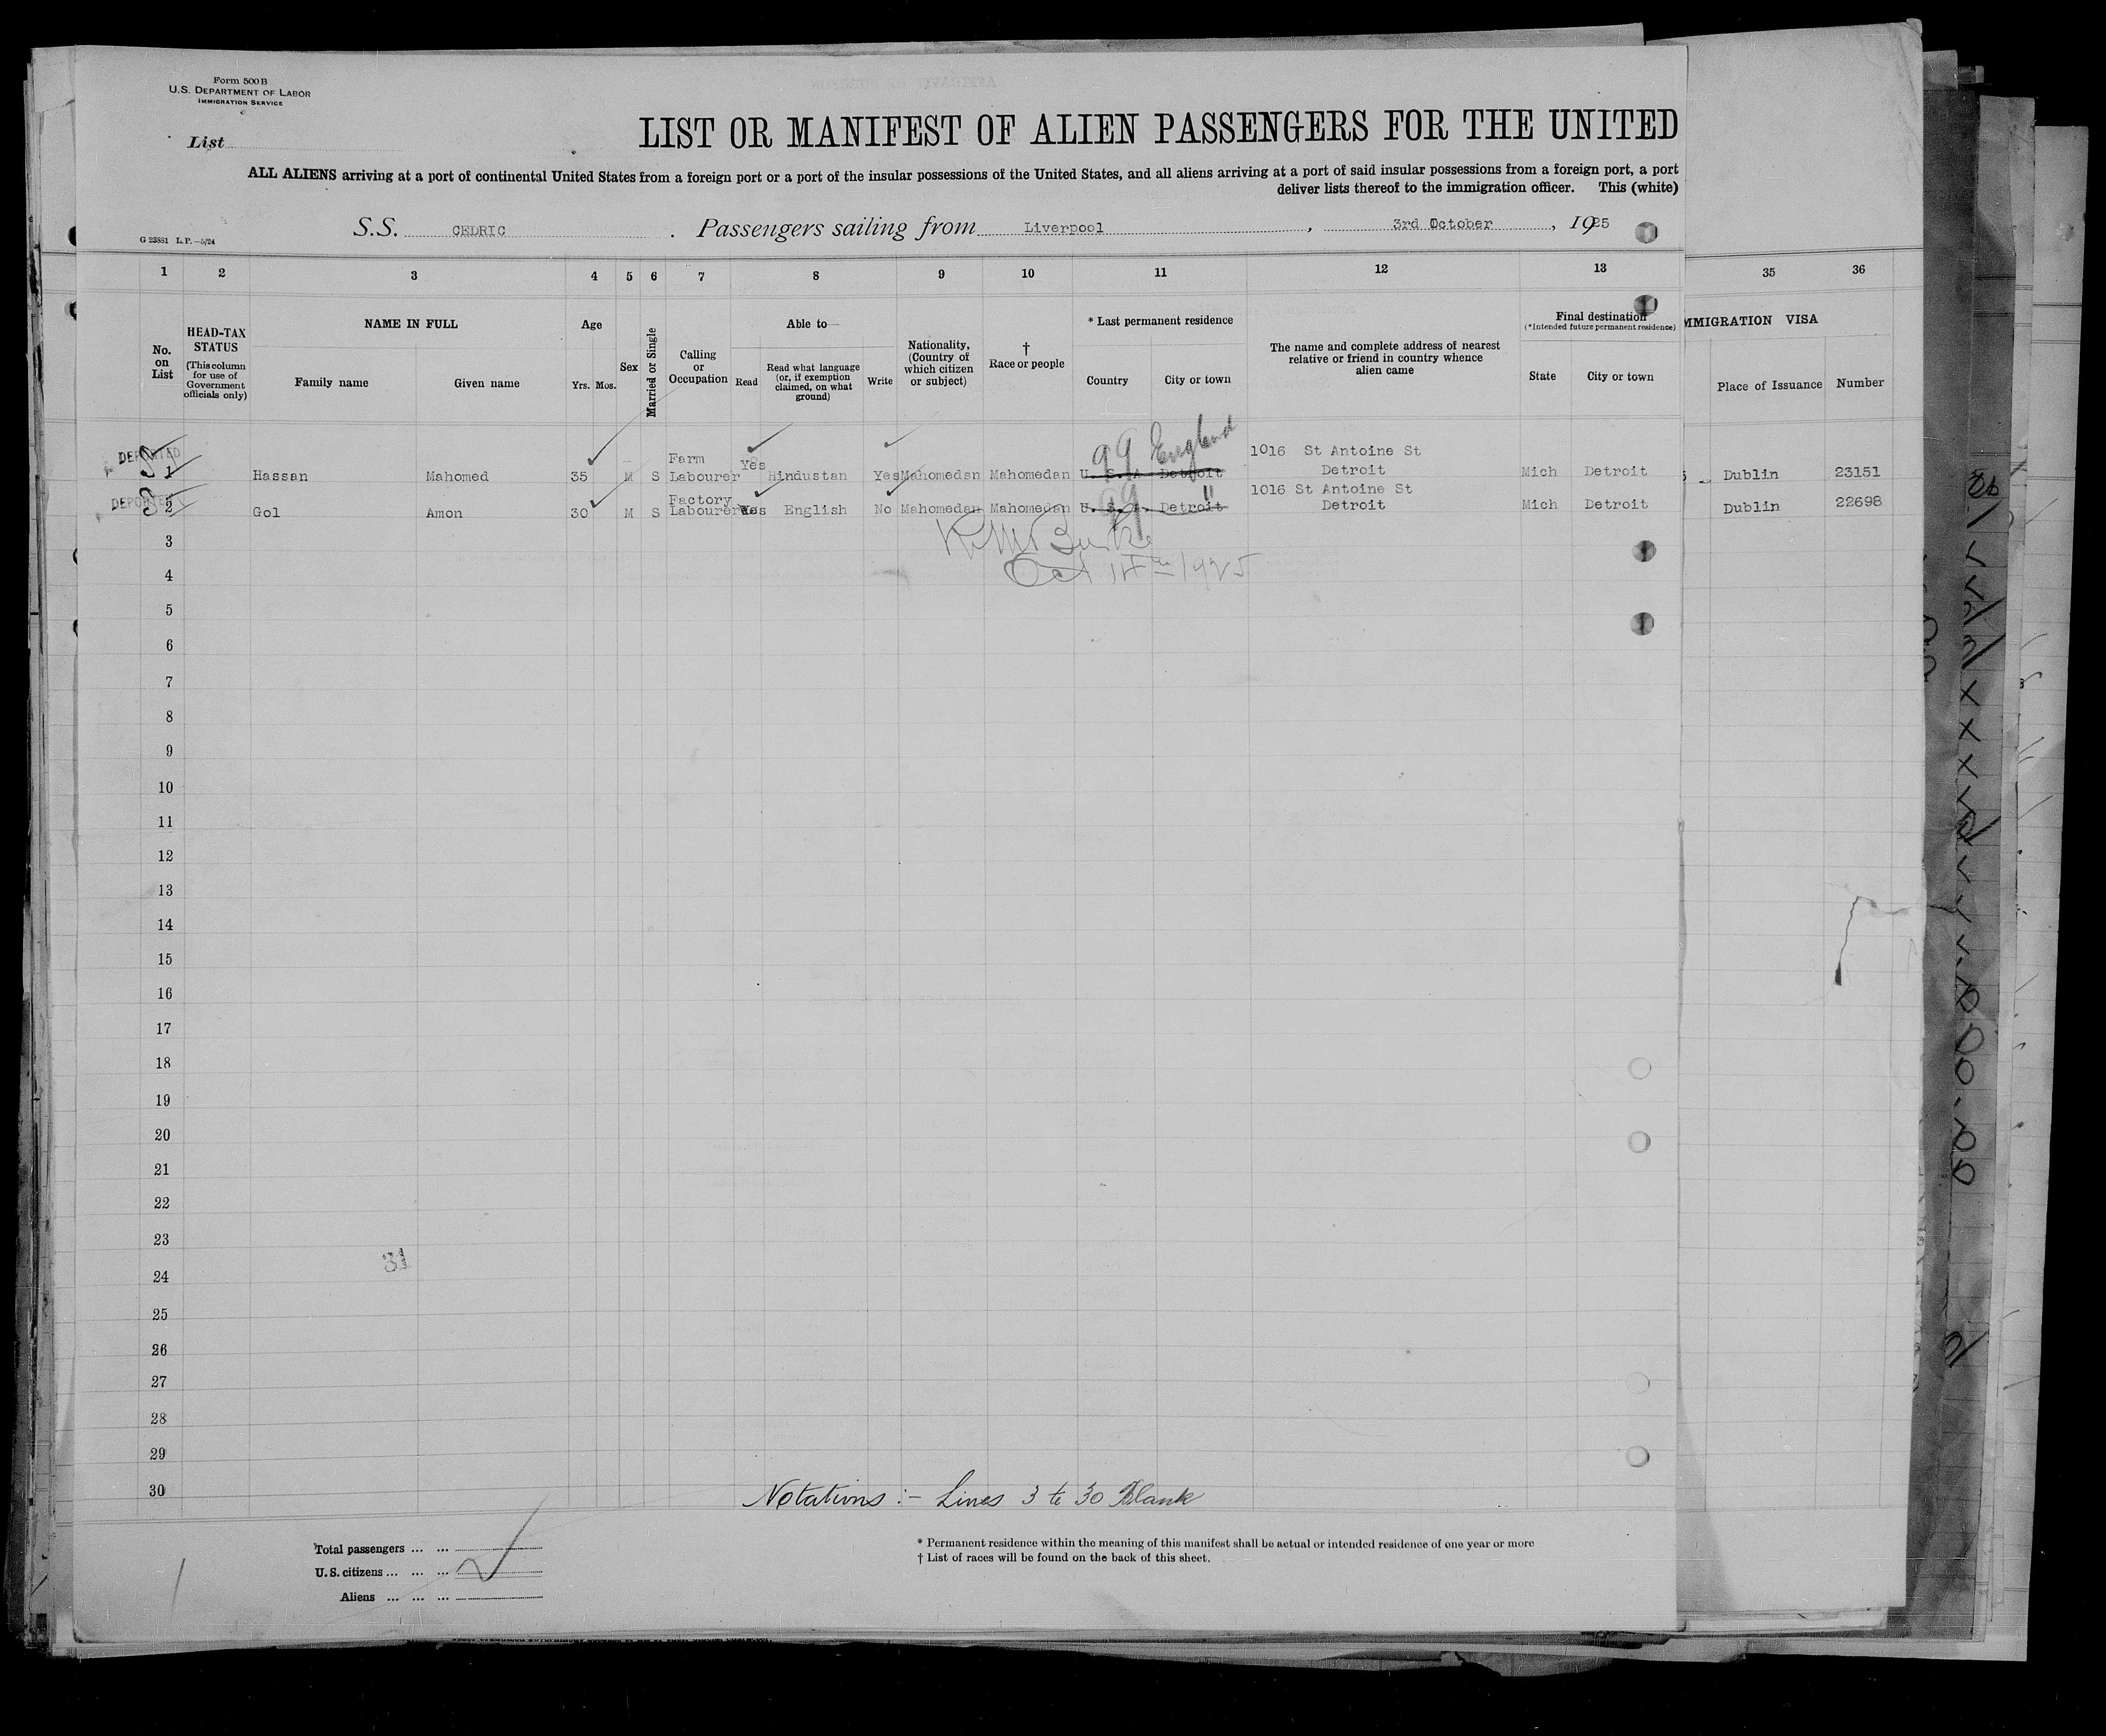 Form 500B
U.S. DEPARTMENT OF LABOR
IMMIGRATION SERVICE
List
LIST OR MANIFEST OF ALIEN PASSENGERS FOR THE UNITED
ALL ALIENS arriving at a port of continental United States from a foreign port or a port of the insular possessions of the United States, and all aliens arriving at a port of said insular possessions from a foreign port, a port
deliver lists thereof to the immigration officer. This (white)
S.S. CEDRIC. Passengers sailing from Liverpool, 3rd October, 1925
G 23881 L.P.—5/24
1 2 3 4 5 6 7 8 9 10 11 12 13 35 36
No. on List
HEAD-TAX STATUS
(This column for use of Government officials only)
NAME IN FULL
Family name
Given name
Age
Yrs. Mos.
Sex
Married or Single
Calling or Occupation
Able to—
Read
Read what language (or, if exemption claimed, on what ground)
Write
Nationality, (Country of which citizen or subject)
† Race or people
* Last permanent residence
Country
City or town
The name and complete address of nearest relative or friend in country whence alien came
Final destination
(*Intended future permanent residence)
State
City or town
MMIGRATION VISA
Place of Issuance
Number
DEPORTED
1 Hassan Mahomed 35 M S Farm Labourer Yes Hindustan Yes Mahomedan Mahomedan U.S.A. Detroit 99 England 1016 St Antoine St Detroit Mich Detroit Dublin 23151
DEPORTED
2 Gol Amon 30 M S Factory Labourer Yes English No Mahomedan Mahomedan U.S.A. Detroit 99 " 1016 St Antoine St Detroit Mich Detroit Dublin 22698
3
Oct 1925
4
5
6
7
8
9
10
11
12
13
14
15
16
17
18
19
20
21
22
23
31
24
25
26
27
28
29
30
Notations :- Lines 3 to 30 Blank
Total passengers ... ...
U.S. citizens ... ... ...
Aliens ... ... ...
* Permanent residence within the meaning of this manifest shall be actual or intended residence of one year or more
† List of races will be found on the back of this sheet.